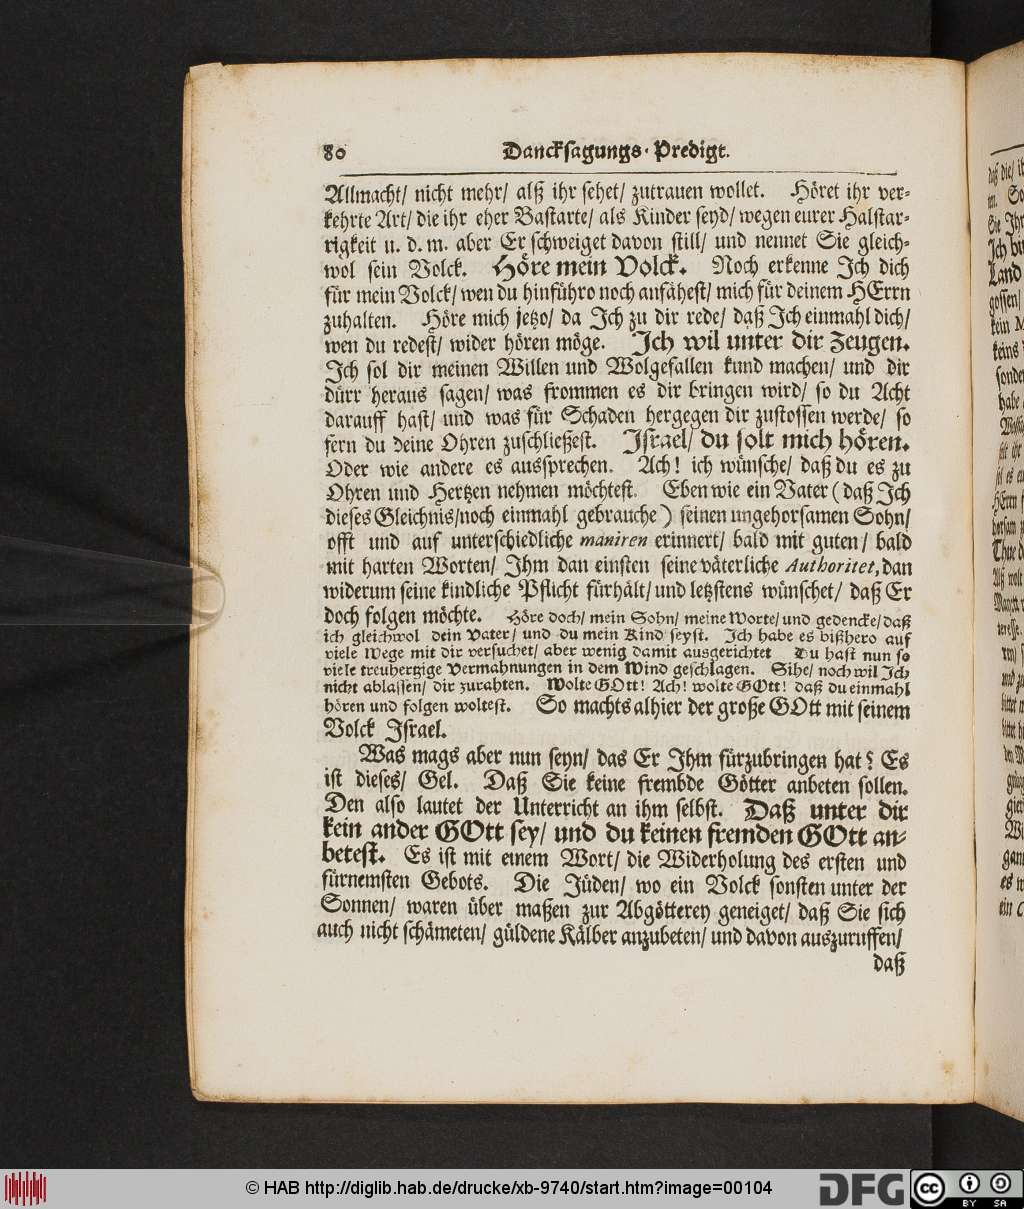 80 Dancksagungs-Predigt.
Allmacht/ nicht mehr/ alß ihr sehet/ zutrauen wollet. Höret ihr ver-
kehrte Art/ die ihr eher Bastarte/ als Kinder seyd/ wegen eurer Halstar-
rigkeit u. d. m. aber Er schweiget davon still/ und nennet Sie gleich-
wol sein Volck. Höre mein Volck. Noch erkenne Ich dich
für mein Volck/ wen du hinführo noch anfähest/ mich für deinem HErrn
zuhalten. Höre mich jetzo/ da Ich zu dir rede/ daß Ich einmahl dich/
wen du redest/ wider hören möge. Ich wil unter dir Zeugen.
Ich sol dir meinen Willen und Wolgefallen kund machen/ und dir
dürr heraus sagen/ was frommen es dir bringen wird/ so du Acht
darauff hast/ und was für Schaden hergegen dir zustossen werde/ so
fern du deine Ohren zuschließest. Israel/ du solt mich hören.
Oder wie andere es aussprechen. Ach! ich wünsche/ daß du es zu
Ohren und Hertzen nehmen möchtest. Eben wie ein Vater (daß Ich
dieses Gleichnis/noch einmahl gebrauche) seinen ungehorsamen Sohn/
offt und auf unterschiedliche maniren erinnert/ bald mit guten/ bald
mit harten Worten/ Ihm dan einsten seine väterliche Authoritet, dan
widerum seine kindliche Pflicht fürhält/ und letzstens wünschet/ daß Er
doch folgen möchte. Höre doch/ mein Sohn/ meine Worte/ und gedencke/ daß
ich gleichwol dein Vater/ und du mein Kind seyst. Ich habe es bißhero auf
viele Wege mit dir versuchet/ aber wenig damit ausgerichtet Du hast nun so
viele treuhertzige Vermahnungen in dem Wind geschlagen. Sihe/ noch wil Ich
nicht ablassen/ dir zurahten. Wolte GOtt! Ach! wolte GOtt! daß du einmahl
hören und folgen woltest. So machts alhier der große GOtt mit seinem
Volck Israel.
Was mags aber nun seyn/ das Er Ihm fürzubringen hat? Es
ist dieses/ Gel. Daß Sie keine frembde Götter anbeten sollen.
Den also lautet der Unterricht an ihm selbst. Daß unter dir
kein ander GOtt sey/ und du keinen fremden GOtt an-
betest. Es ist mit einem Wort/ die Widerholung des ersten und
fürnemsten Gebots. Die Jüden/ wo ein Volck sonsten unter der
Sonnen/ waren über maßen zur Abgötterey geneiget/ daß Sie sich
auch nicht schämeten/ güldene Kälber anzubeten/ und davon auszuruffen/
daß
© HAB http://diglib.hab.de/drucke/xb-9740/start.htm?image=00104
DFG
cc BY SA